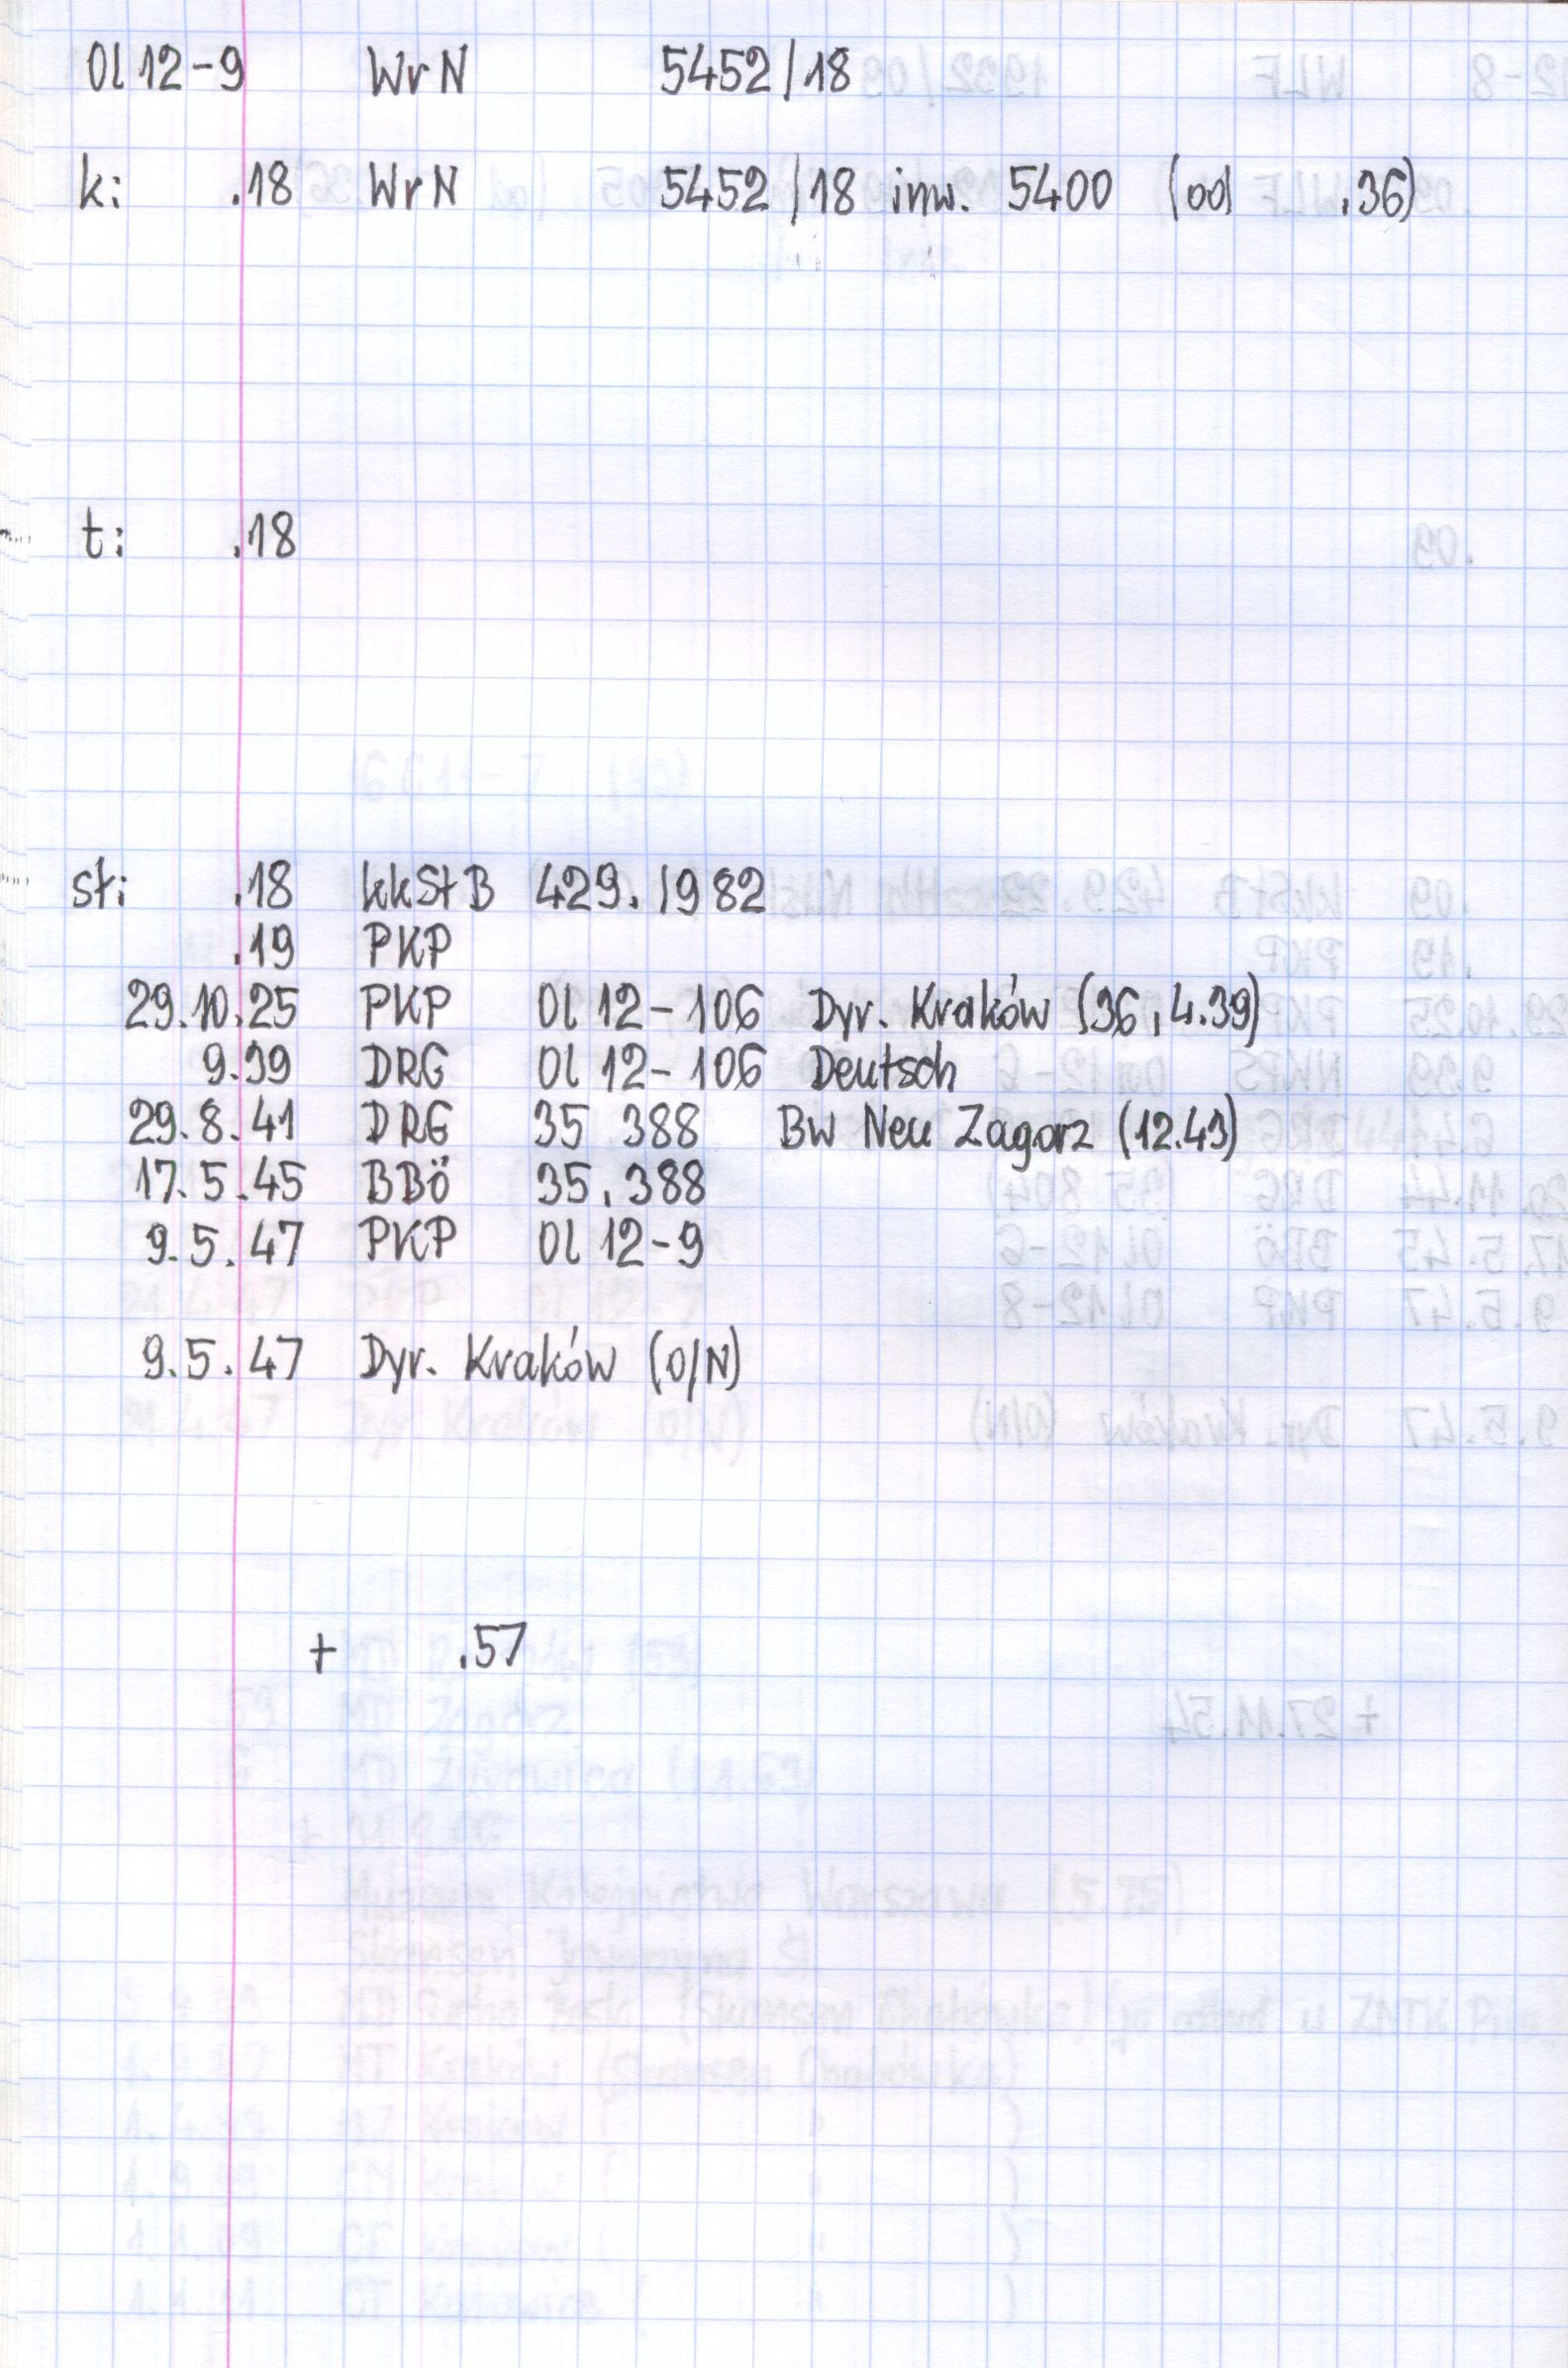 Ol 12-9 WrN 5452/18
k: .18 WrN 5452/18 inw. 5400 (od .36)
t: .18
st: .18 kkStB 429.1982
.19 PKP
29.10.25 PKP Ol 12-106 Dyr. Kraków (36, 4.39)
9.39 DRG Ol 12-106 Deutsch
29.8.41 DRG 35 388 Bw Neu Zagorz (12.43)
17.5.45 BBÖ 35.388
9.5.47 PKP Ol 12-9
9.5.47 Dyr. Kraków (O/N)
+ .57